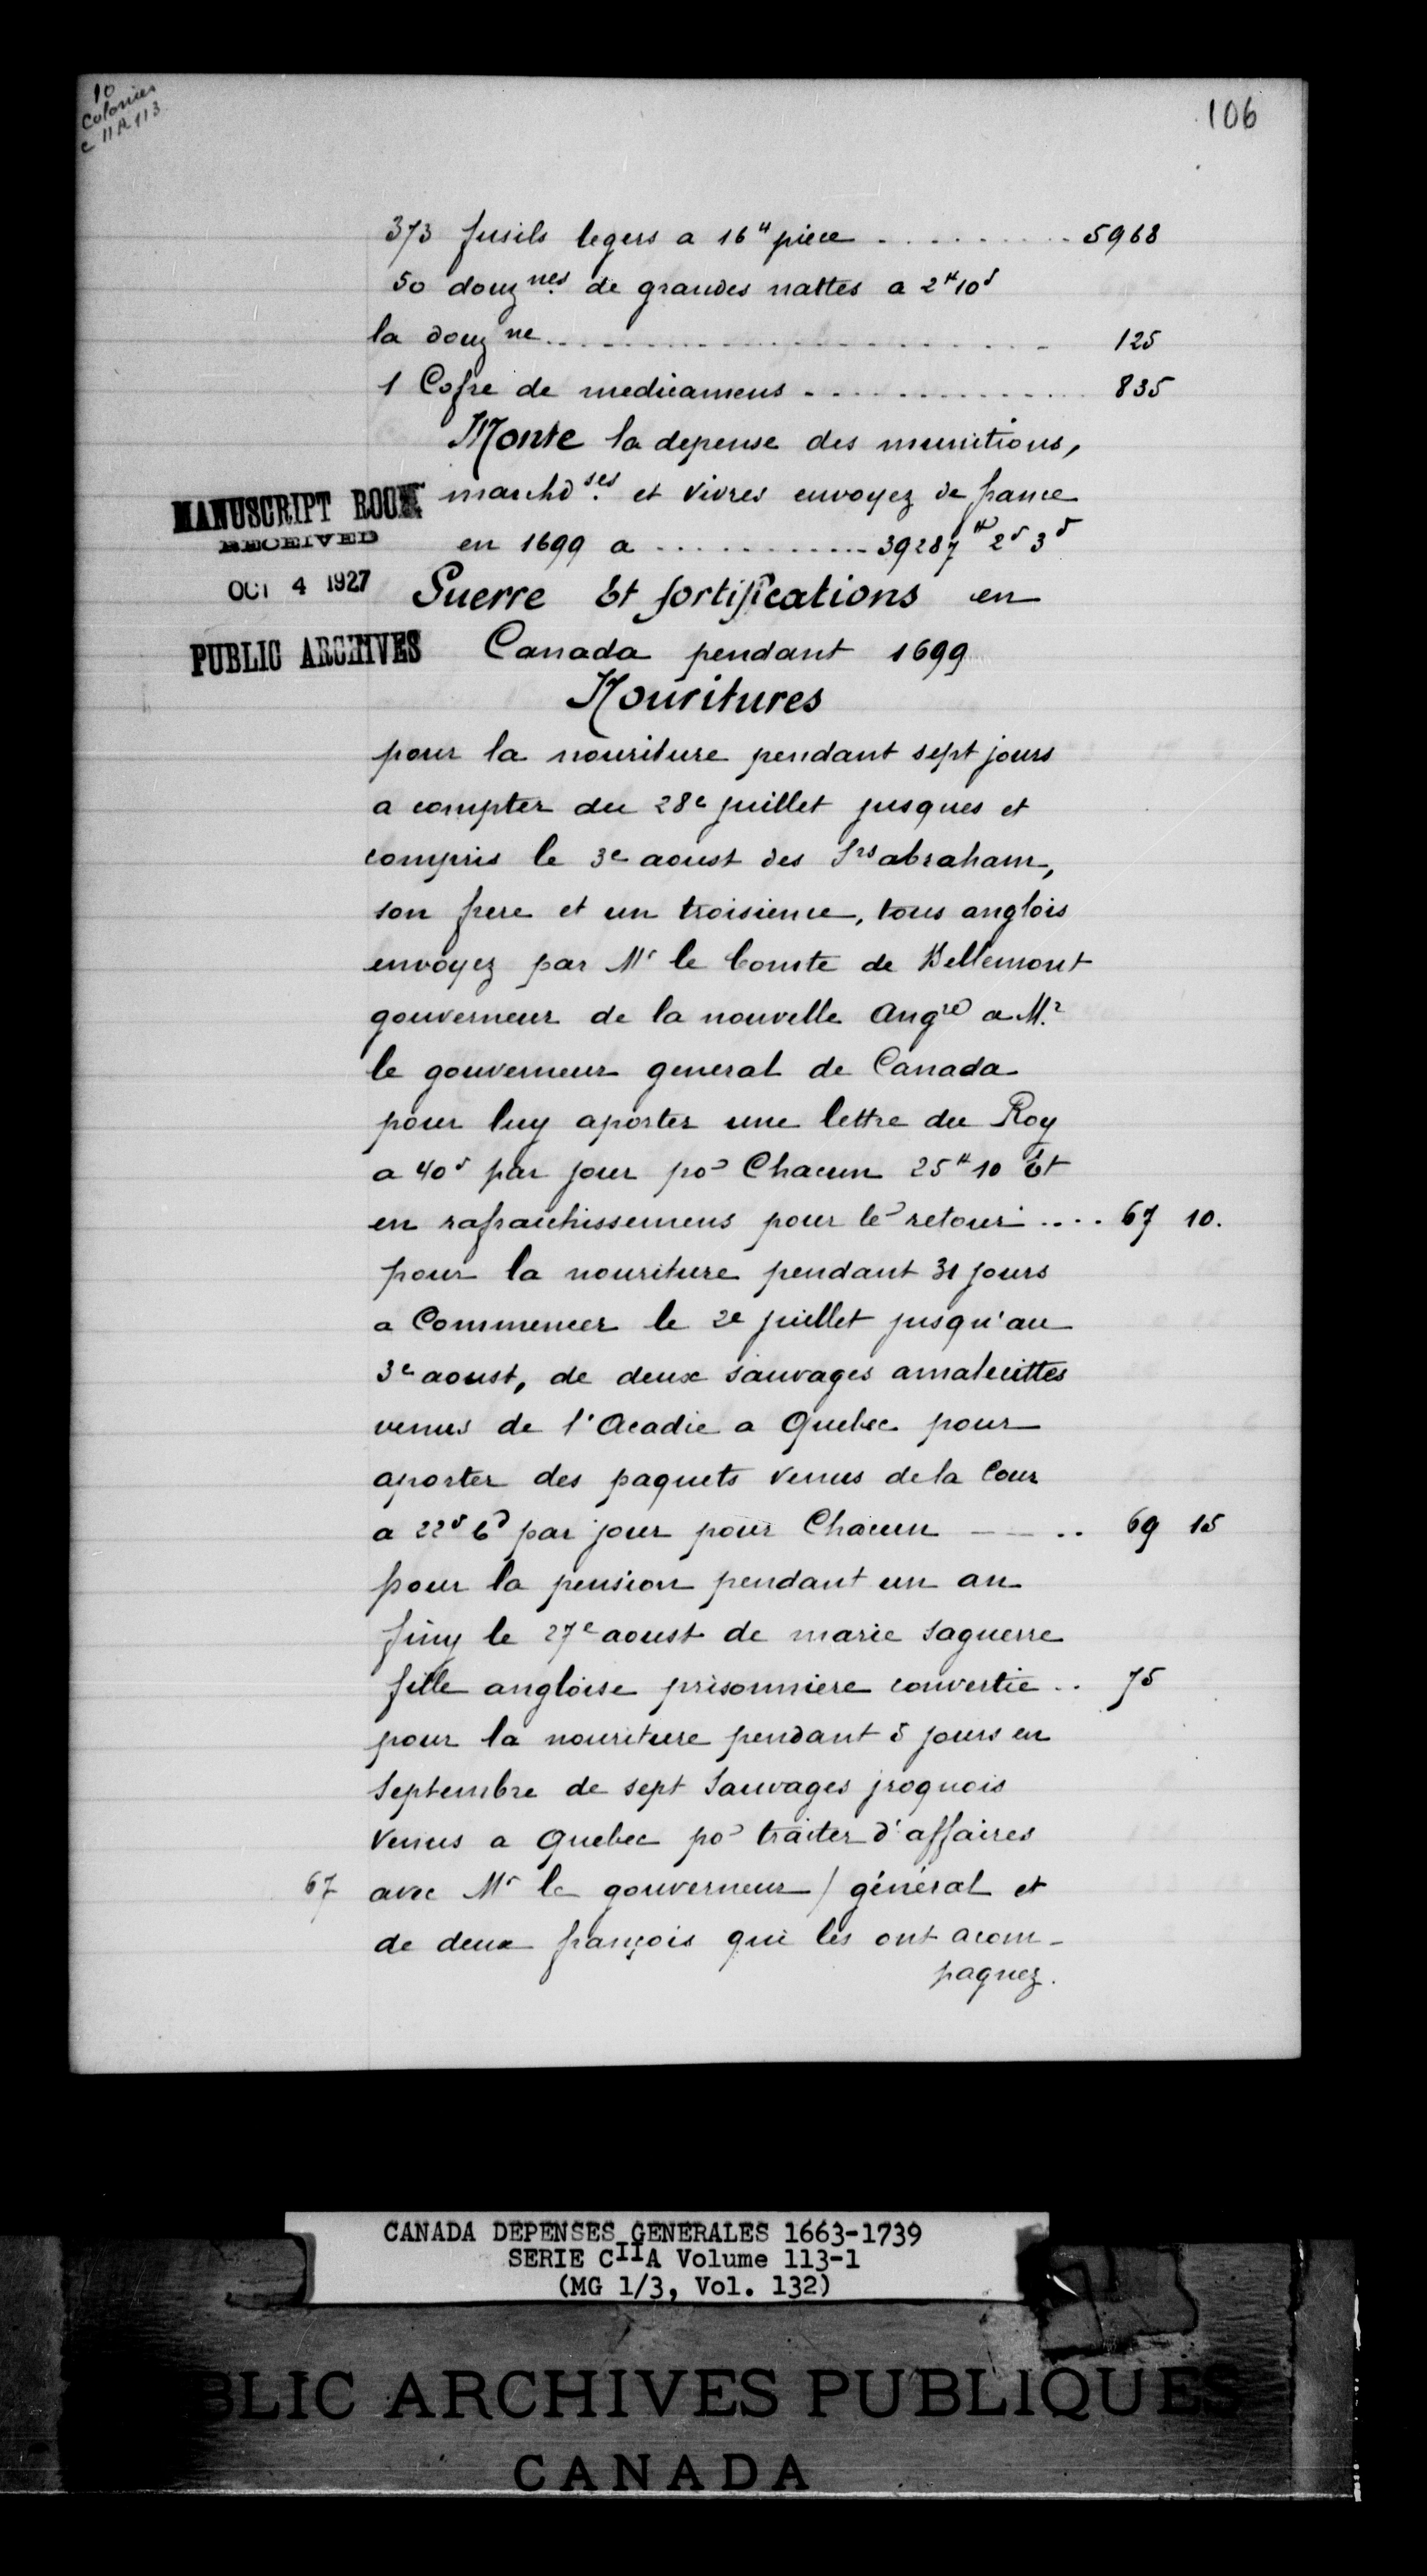 10
Colonies
C 11 A 113
106
373 fusils legers a 16tt piece .......... 5968
50 douznes de grandes nattes a 2tt 10s
la douzne .......... 125
1 Cofre de medicamens .......... 835
Monte la depense des munitions,
marchdses et vivres envoyez de france
en 1699 a .......... 39287tt 2s 3d
MANUSCRIPT ROOM
RECEIVED
OCT 4 1927
PUBLIC ARCHIVES
Guerre Et fortifications en
Canada pendant 1699
Nouritures
pour la nouriture pendant sept jours
a compter du 28e juillet jusques et
compris le 3e aoust des Srs abraham,
son frere et un troisieme, tous anglois
envoyez par Mr le Comte de Bellemont
gouverneur de la nouvelle Angre a Mr
le gouverneur general de Canada
pour luy aporter une lettre du Roy
a 40s par jour po Chacun 25tt 10 Et
en rafraichissemens pour le retour .... 67 10.
pour la nouriture pendant 31 jours
a Commencer le 2e juillet jusqu'au
3e aoust, de deux sauvages amalecittes
venus de l'Acadie a Quebec pour
aporter des paquets venus de la Cour
a 22s 6d par jour pour Chacun .. 69 15
pour la pension pendant un an
finy le 27e aoust de marie saguerre
fille angloise prisonniere convertie .. 75
pour la nouriture pendant 5 jours en
Septembre de sept Sauvages jroquois
venus a Quebec po traiter d'affaires
67 avec Mr le gouverneur / général et
de deux françois qui les ont acom-
pagnez.
CANADA DEPENSES GENERALES 1663-1739
SERIE CIIA Volume 113-1
(MG 1/3, Vol. 132)
BLIC ARCHIVES PUBLIQUES
CANADA